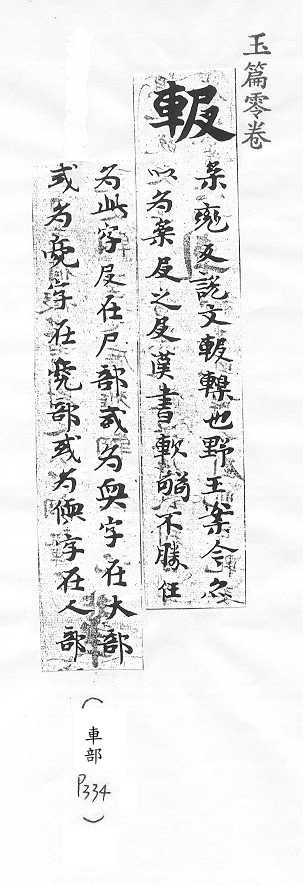 玉篇零卷
𨋚
柔兗反說文𨋚轢也野王案今亦
以為柔㞋之㞋漢書軟弱不勝任
為此字㞋在尸部或為耎字在大部
或為字在部或為偄字在人部
(車部P334)